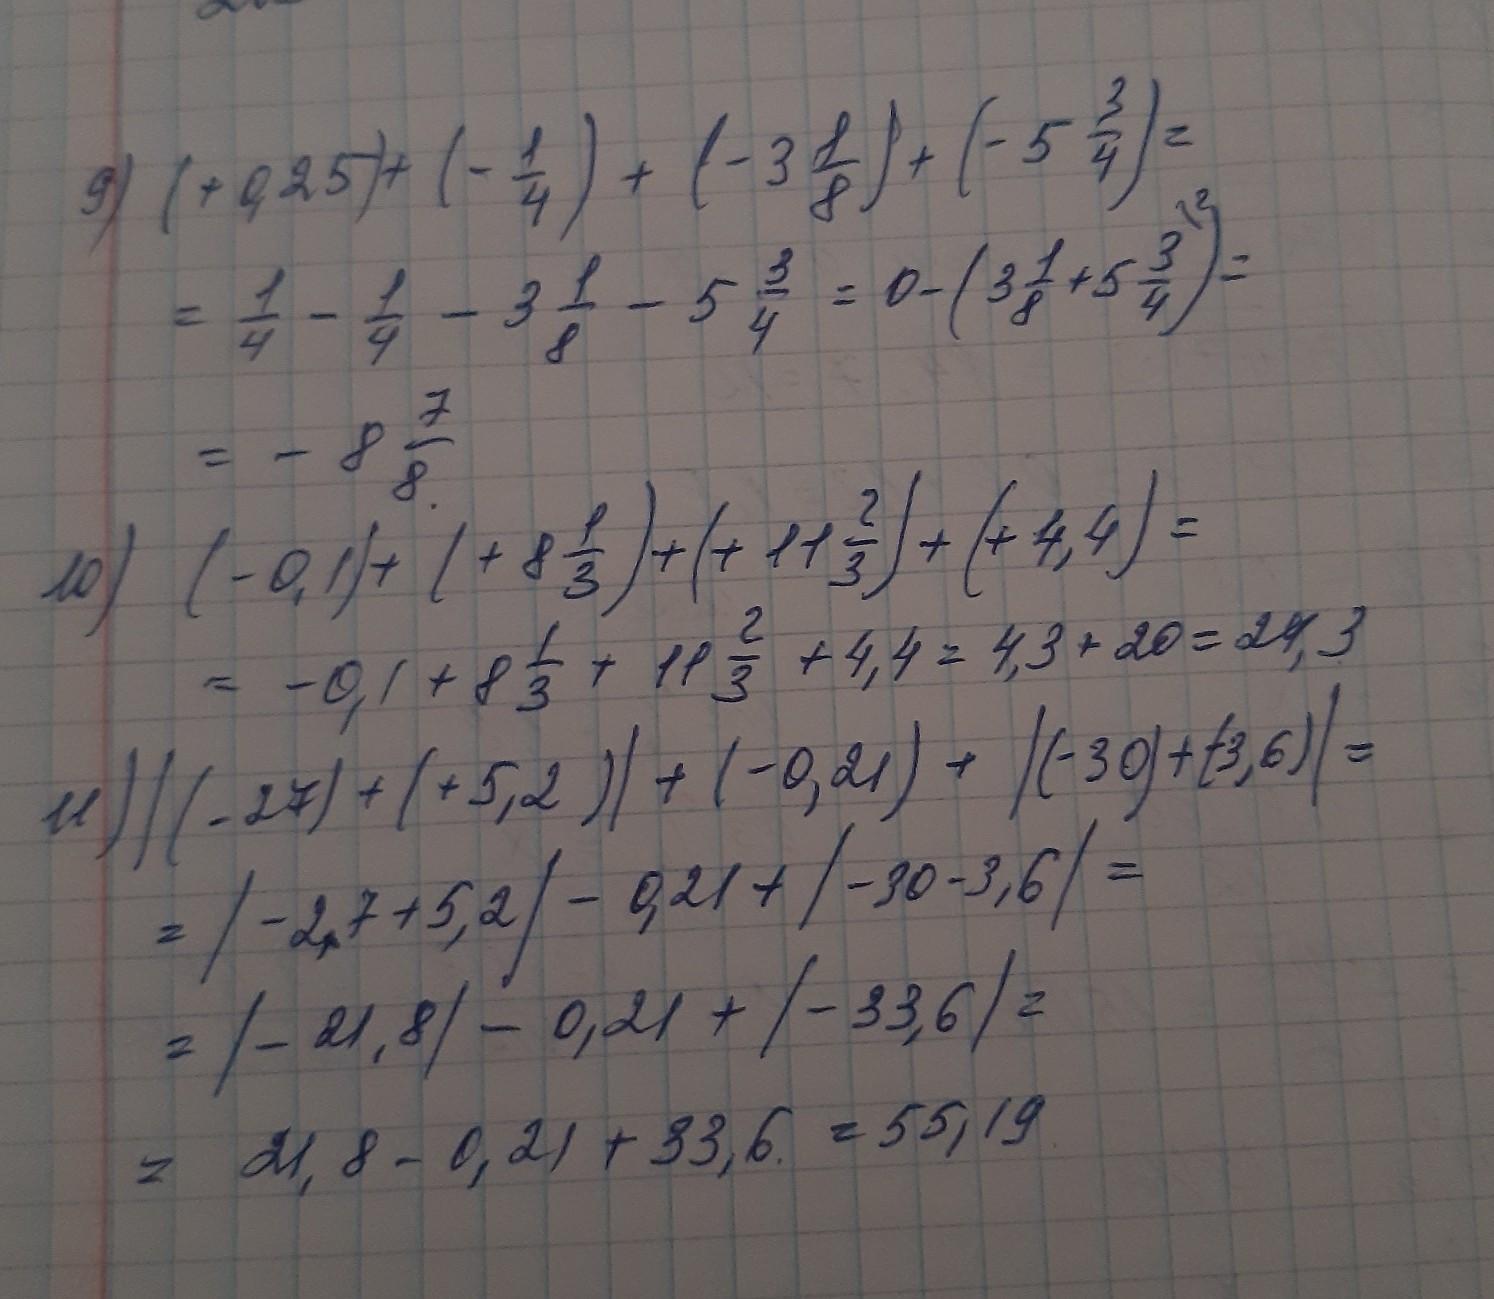 9) (+0,25)+(-1/4)+(-3 1/8)+(-5 3/4)=
= 1/4 - 1/4 - 3 1/8 - 5 3/4 = 0-(3 1/8+5 3/4 \2)=
= - 8 7/8.
10) (-0,1)+(+8 1/3)+(+11 2/3)+(+4,4)=
= -0,1+8 1/3+11 2/3+4,4=4,3+20=24,3
11) |(-27)+(+5,2)|+(-0,21)+|(-30)+(-3,6)|=
= |-2,7+5,2|-0,21+|-30-3,6|=
= |-21,8|-0,21+|-33,6|=
= 21,8-0,21+33,6.=55,19